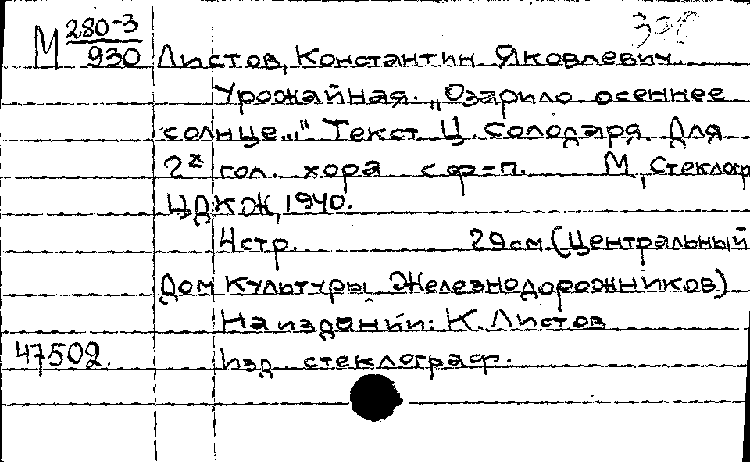 М 280-3
930 Листов, Константин Яковлевич.
Урожайная. „Озарило осеннее
солнце..." Текст Ц. Солодаря. Для
2х гол. хора с ф=п. М, Стеклогр
ЦДКЖ, 1940.
4 стр. 29 см. (Центральный
Дом Культуры Железнодорожников)
На издании: К. Листов
47502. Изд. стеклограф.